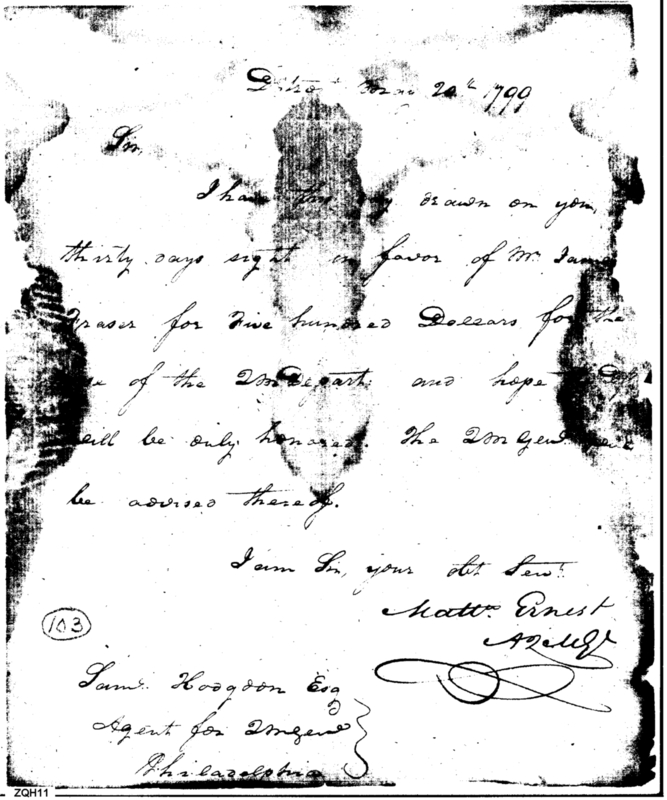 20th 1799
Sir,
I have this day drawn on you,
thirty days sight in favor of Mr. James
Fraser for Five hundred Dollars for the
use of the QM Depart: and hope
will be duly honored. The QM Genl.
be advised thereof.
I am Sir, your obt Servt.
Matth. Ernest
AQMGl
103
Saml. Hodgdon Esq
Agent for QMGenl
Philadelphia
ZQH11